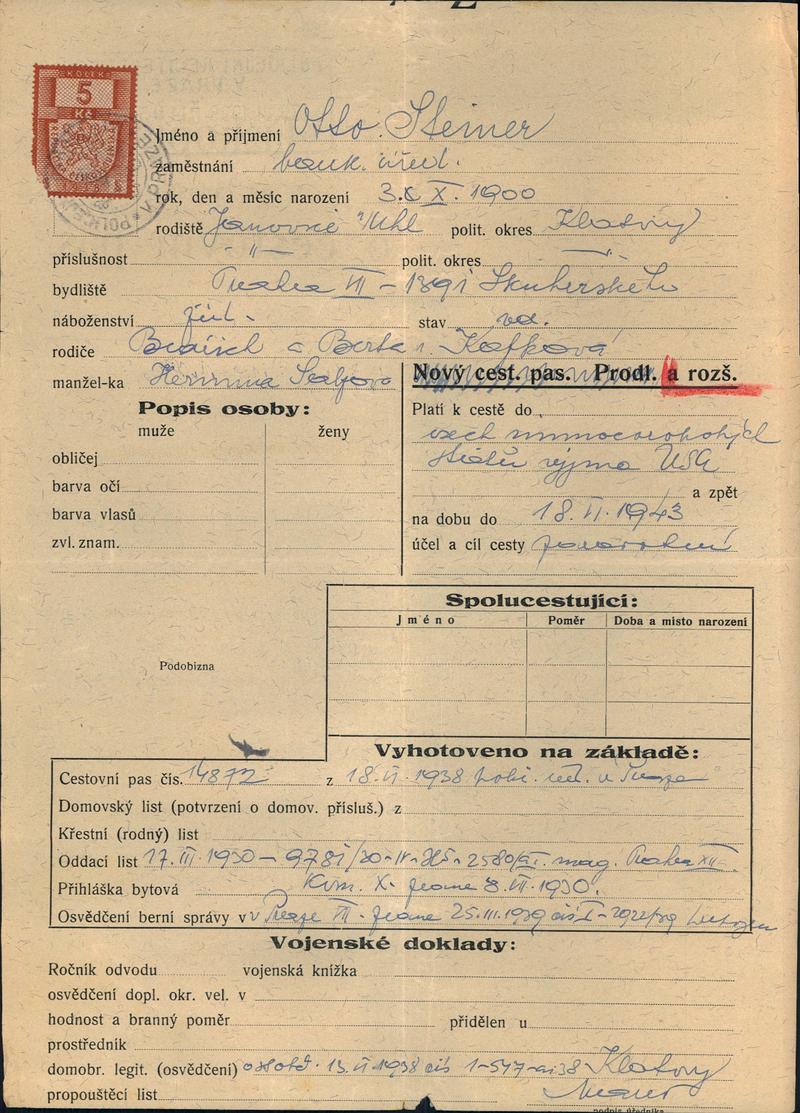 KOLEK
5
Kč
V PRAZE
Jméno a příjmení Otto Steiner
zaměstnání bank. úřed.
rok, den a měsíc narození 3. X. 1900
rodiště Janovice Úhl polit. okres Klatovy
příslušnost -"- polit. okres -"-
bydliště Praha VII - 1891 Skuherského
náboženství žid. stav
rodiče Bedřich a Berta r. Kafková
manžel-ka Hermina
Nový cest. pas. Prodl. a rozš.
Popis osoby:
muže ženy
Platí k cestě do
všech mimoevropských
států vyjma USA
obličej
barva očí
a zpět
barva vlasů
na dobu do 18. VI. 1943
zvl. znam.
účel a cíl cesty
Spolucestující:
Jméno Poměr Doba a místo narození
Podobizna
Vyhotoveno na základě:
Cestovní pas čís. 14872 z 18. VI. 1938 poli. řed. v Praze
Domovský list (potvrzení o domov. přísluš.) z
Křestní (rodný) list
Oddací list 17. III. 1930 - 9781/30-IV- mag. Praha XII.
Přihláška bytová Kom. X. 8. VII. 1930.
Osvědčení berní správy v v Praze VII - 25. III. 1939 čís
Vojenské doklady:
Ročník odvodu vojenská knížka
osvědčení dopl. okr. vel. v
hodnost a branný poměr přidělen u
prostředník
domobr. legit. (osvědčení) 13. VI 1938 čís 1-547-ai38 Klatovy
propouštěcí list
podpis úředníka